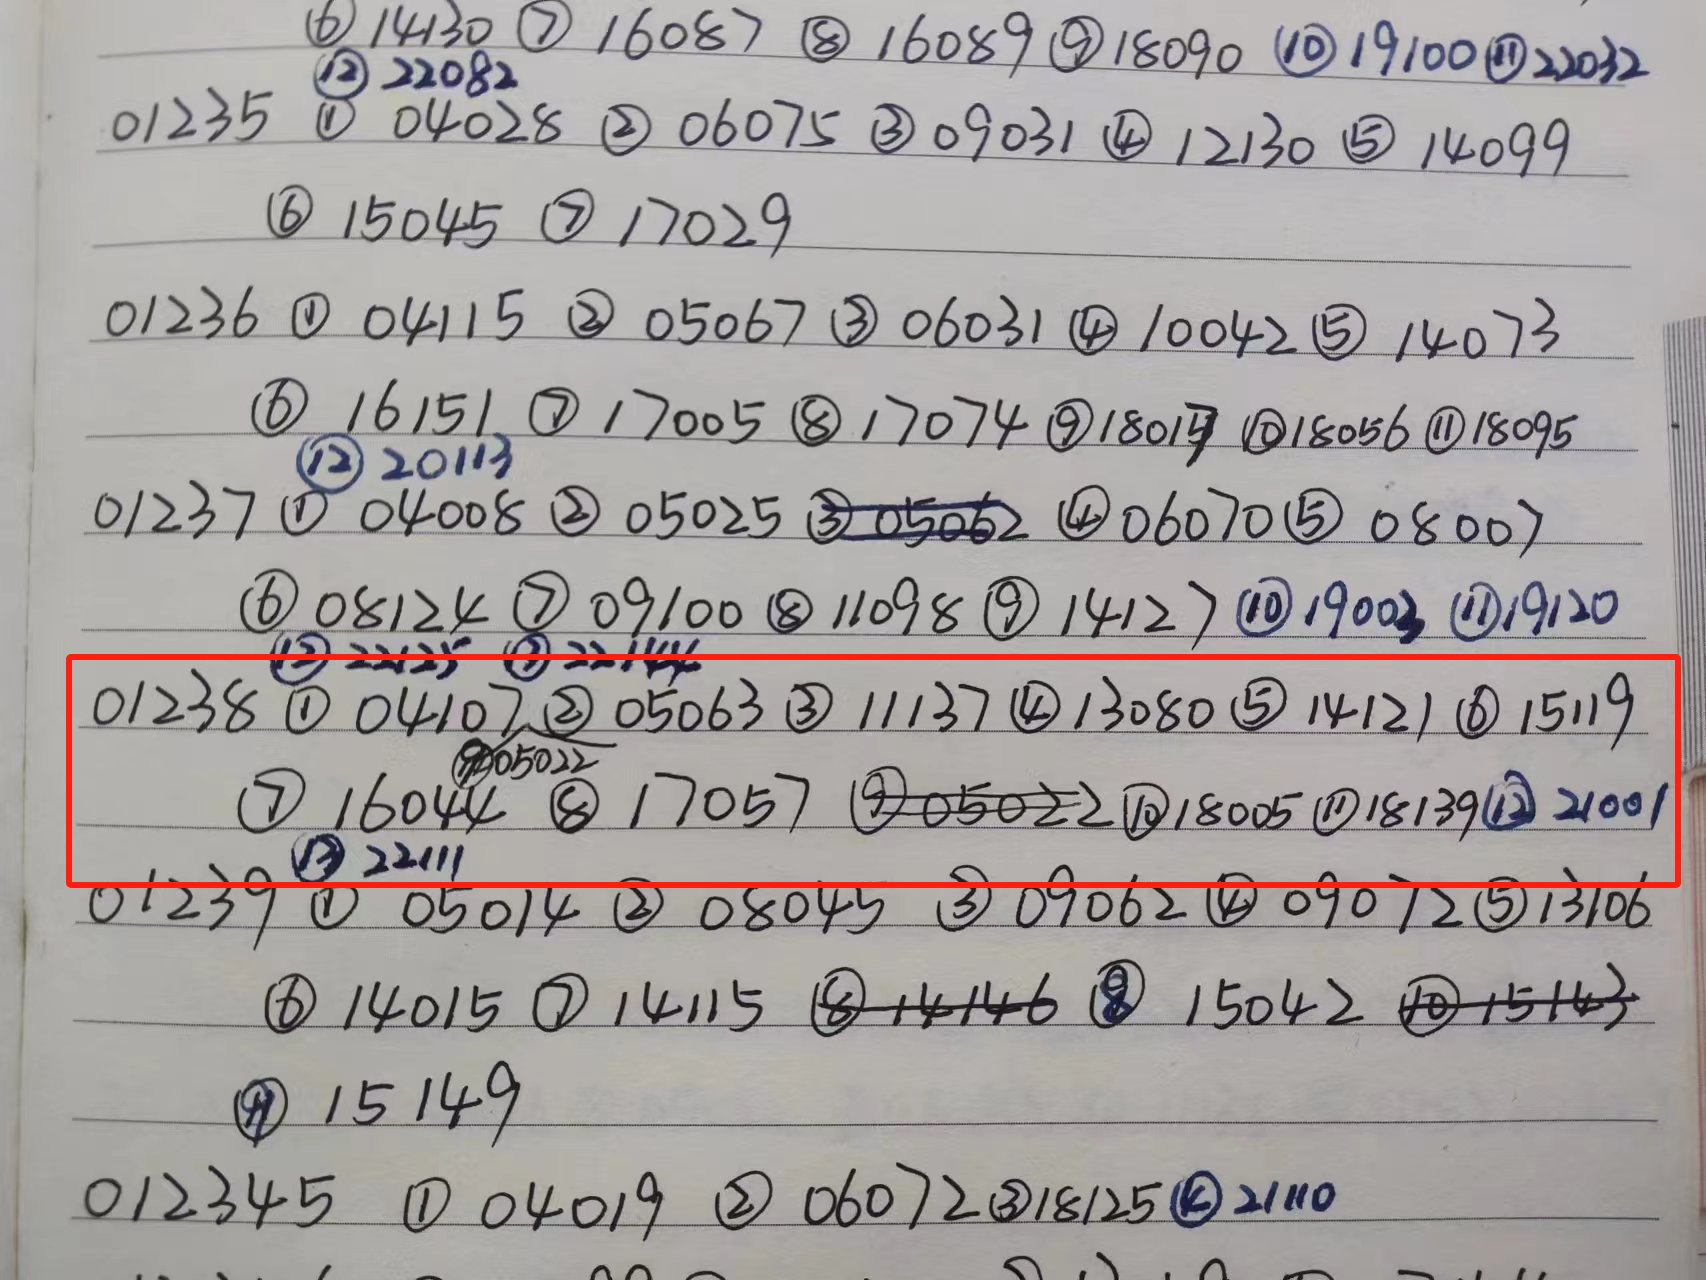 ⑥ 14130 ⑦ 16087 ⑧ 16089 ⑨ 18090 ⑩ 19100 ⑪ 22032
⑫ 22082
01235 ① 04028 ② 06075 ③ 09031 ④ 12130 ⑤ 14099
⑥ 15045 ⑦ 17029
01236 ① 04115 ② 05067 ③ 06031 ④ 10042 ⑤ 14073
⑥ 16151 ⑦ 17005 ⑧ 17074 ⑨ 18017 ⑩ 18056 ⑪ 18095
⑫ 20113
01237 ① 04008 ② 05025 ③ 05062 ④ 06070 ⑤ 08007
⑥ 08124 ⑦ 09100 ⑧ 11098 ⑨ 14127 ⑩ 19003 ⑪ 19120
⑫ 22125 ⑬ 22144
01238 ① 04107 ② 05063 ③ 11137 ④ 13080 ⑤ 14121 ⑥ 15119
05022
⑦ 16044 ⑧ 17057 ⑨ 05022 ⑩ 18005 ⑪ 18139 ⑫ 21001
⑬ 22111
01239 ① 05014 ② 08045 ③ 09062 ④ 09072 ⑤ 13106
⑥ 14015 ⑦ 14115 ⑧ 14146 ⑧ 15042 ⑩ 15143
15149
012345 ① 04019 ② 06072 ③ 18125 ④ 21110